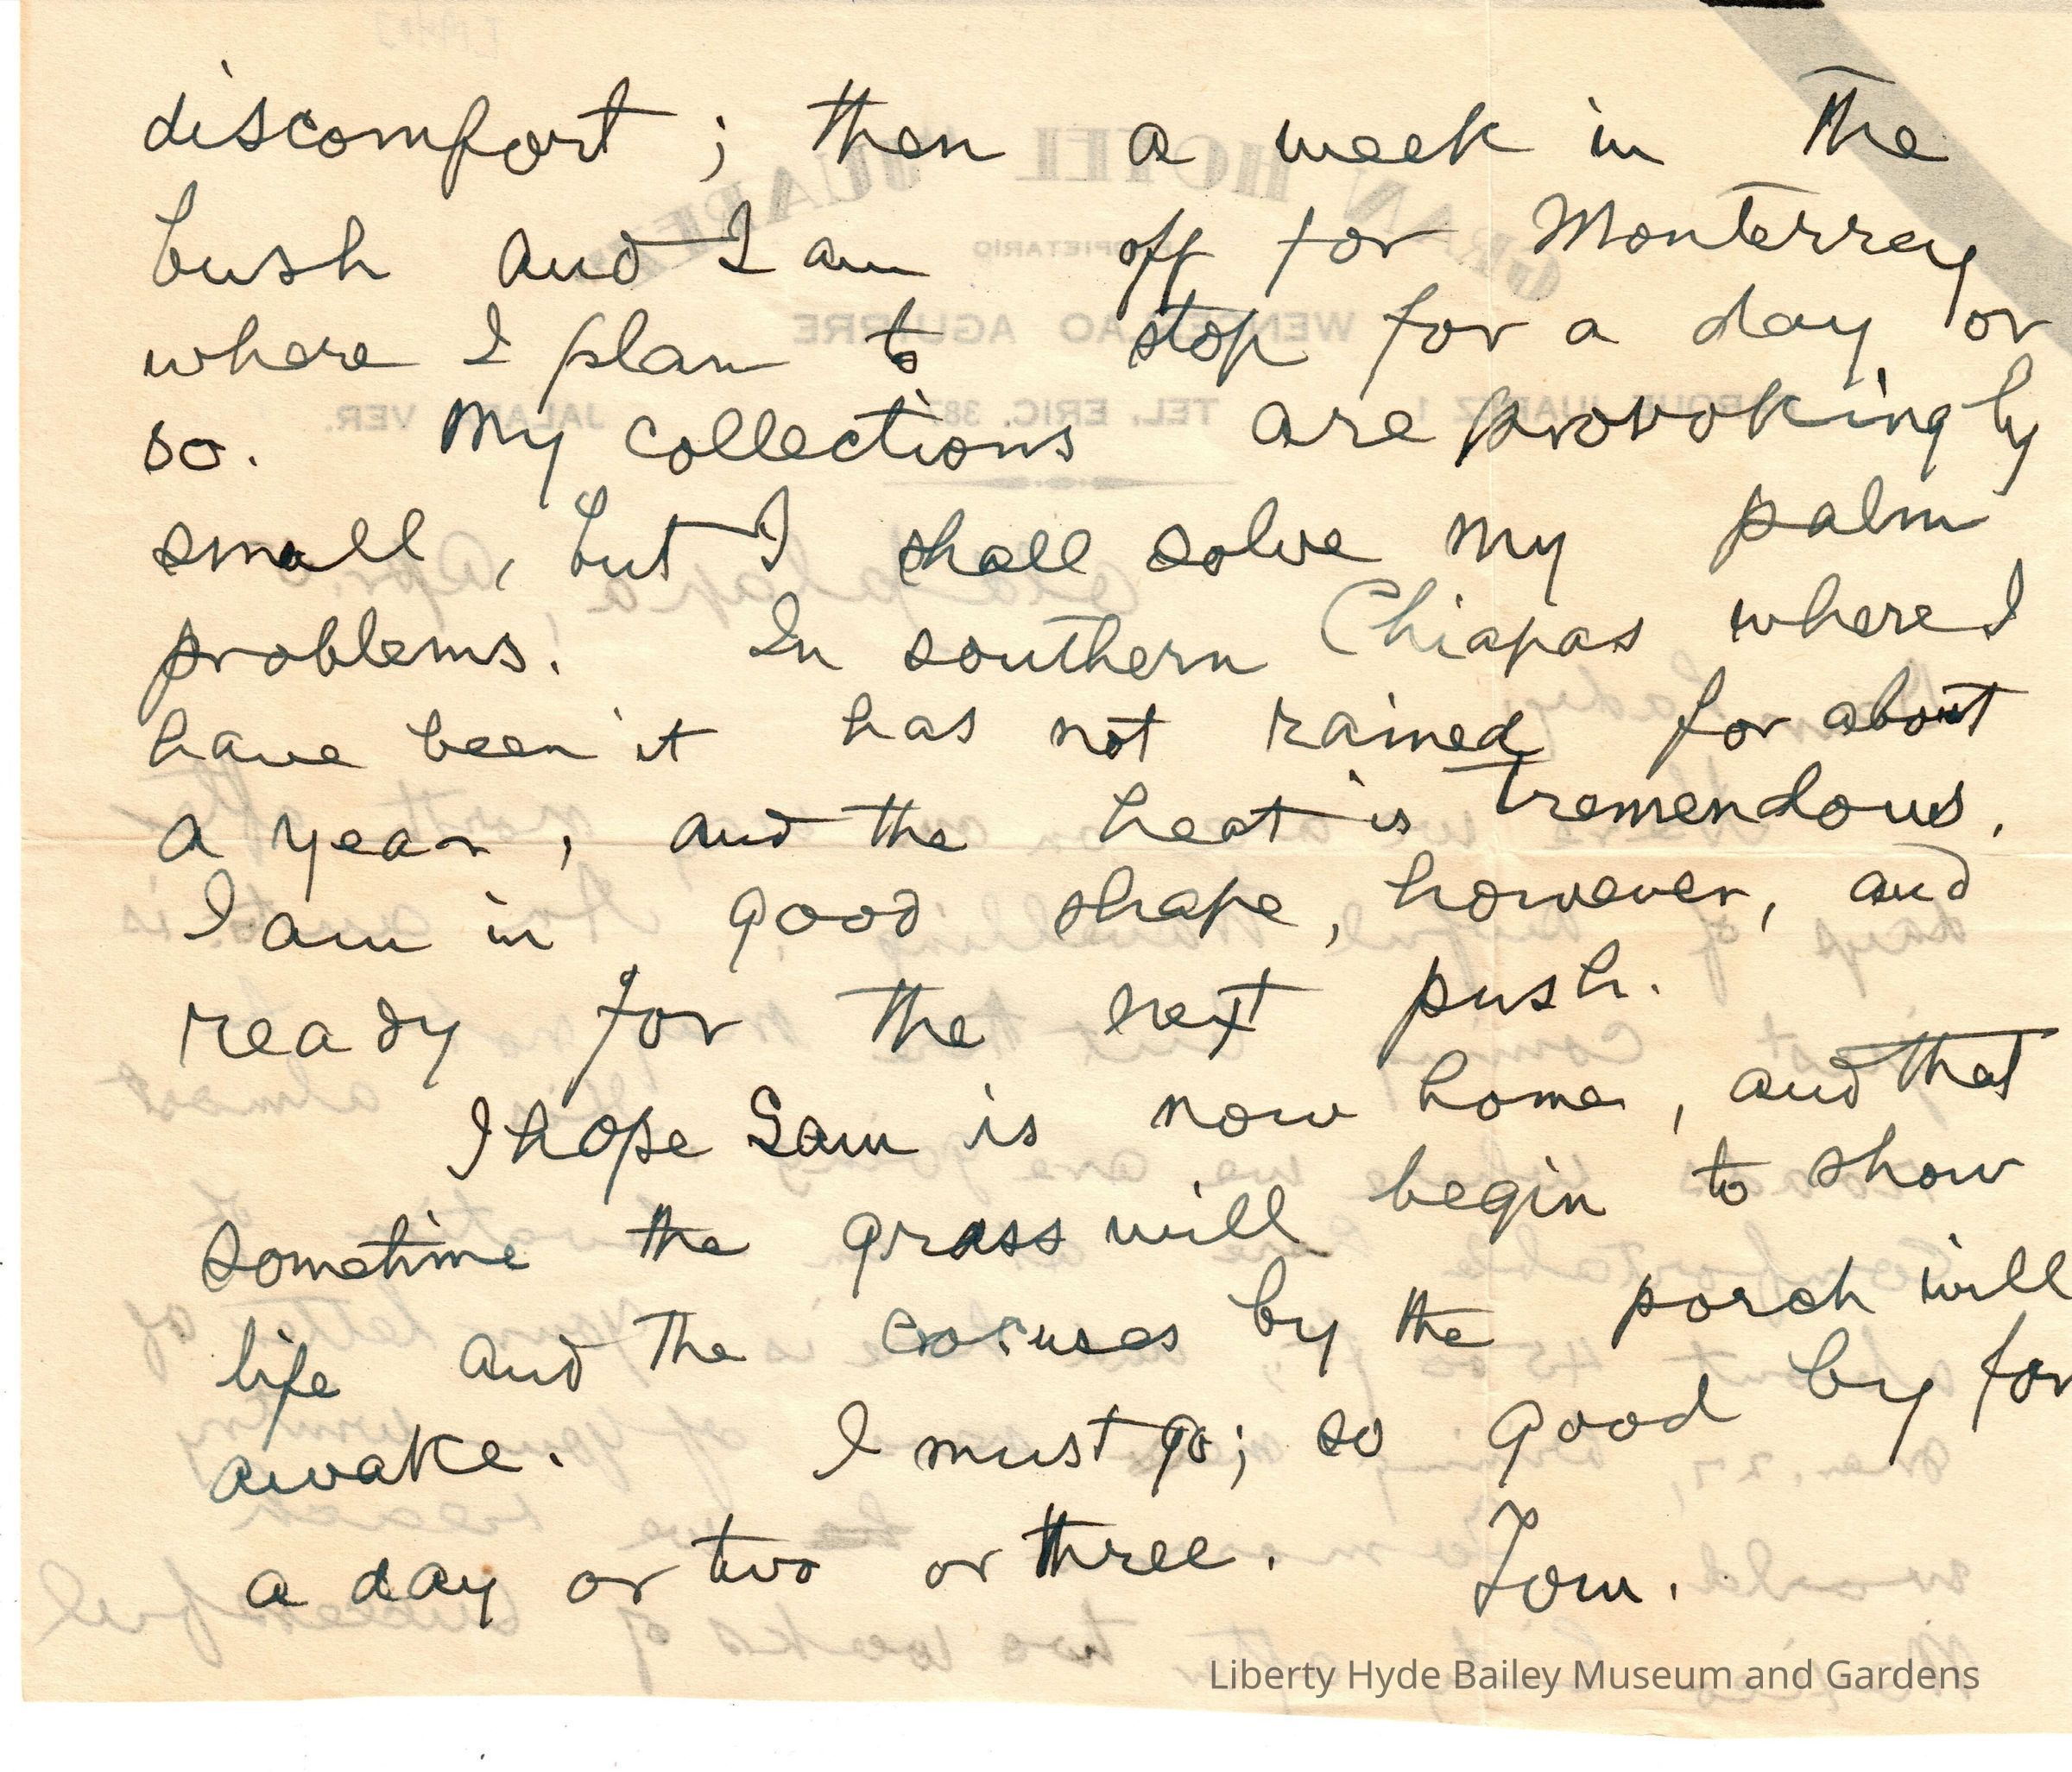 discomfort; then a week in the
bush and I am off for Monterrey
where I plan to stop for a day or
so. My collections are provokingly
small, but I shall solve my palm
problems. In southern Chiapas where I
have been it has not rained for about
a year, and the heat is tremendous.
I am in good shape, however, and
ready for the next push.
I hope Sam is now home, and that
sometime the grass will begin to show
life and the crocuses by the porch will
awake. I must go; so good by for
a day or two or three. Tom.
Liberty Hyde Bailey Museum and Gardens